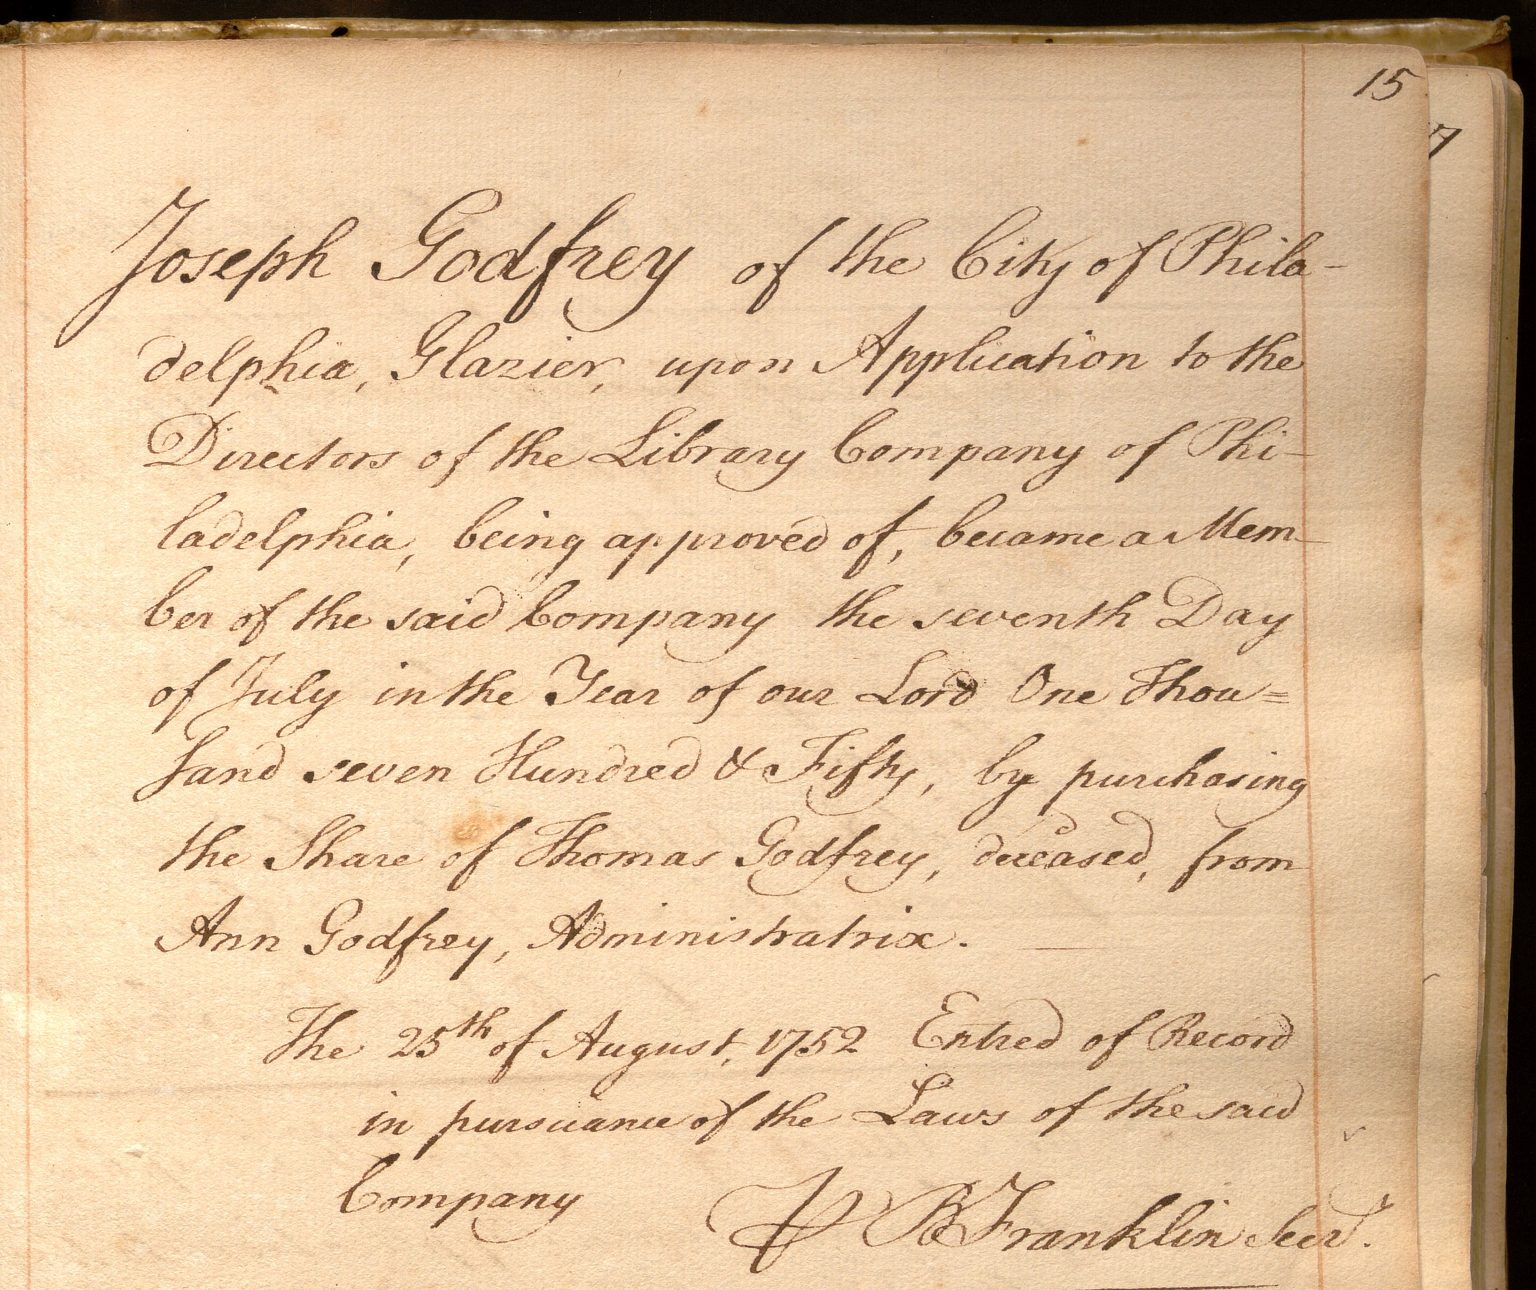 15
17
Joseph Godfrey of the City of Phila-
delphia, Glazier, upon Application to the
Directors of the Library Company of Phi-
ladelphia, being approved of, became a Mem-
ber of the said Company the seventh Day
of July in the Year of our Lord One Thou=
sand seven Hundred & Fifty, by purchasing
the Share of Thomas Godfrey, deceased, from
Ann Godfrey, Administratrix.
The 25th of August, 1752 Entred of Record
in pursuance of the Laws of the said
Company
P B Franklin Secr.